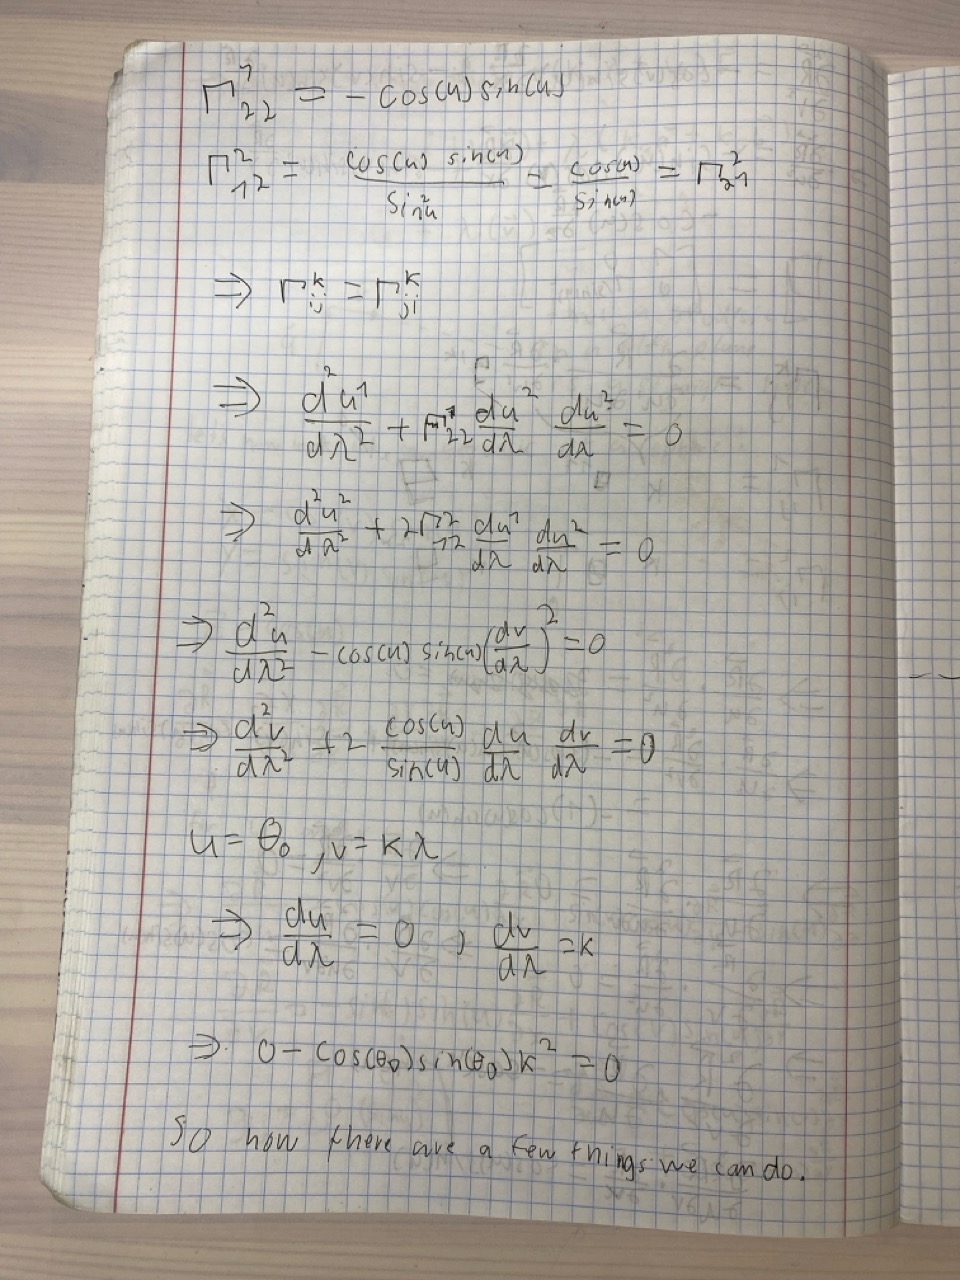 Γ¹₂₂ = - cos(u) sin(u)
Γ²₁₂ = cos(u) sin(u) / sin²u = cos(u) / sin(u) = Γ²₂₁
⇒ Γᵏᵢⱼ = Γᵏⱼᵢ
⇒ d²u¹/dλ² + Γ¹₂₂ du²/dλ du²/dλ = 0
⇒ d²u²/dλ² + 2Γ²₁₂ du¹/dλ du²/dλ = 0
⇒ d²u/dλ² - cos(u) sin(u) (dv/dλ)² = 0
⇒ d²v/dλ² + 2 cos(u)/sin(u) du/dλ dv/dλ = 0
u = θ₀ , v = kλ
⇒ du/dλ = 0 , dv/dλ = k
⇒ 0 - cos(θ₀) sin(θ₀) k² = 0
So now there are a few things we can do.